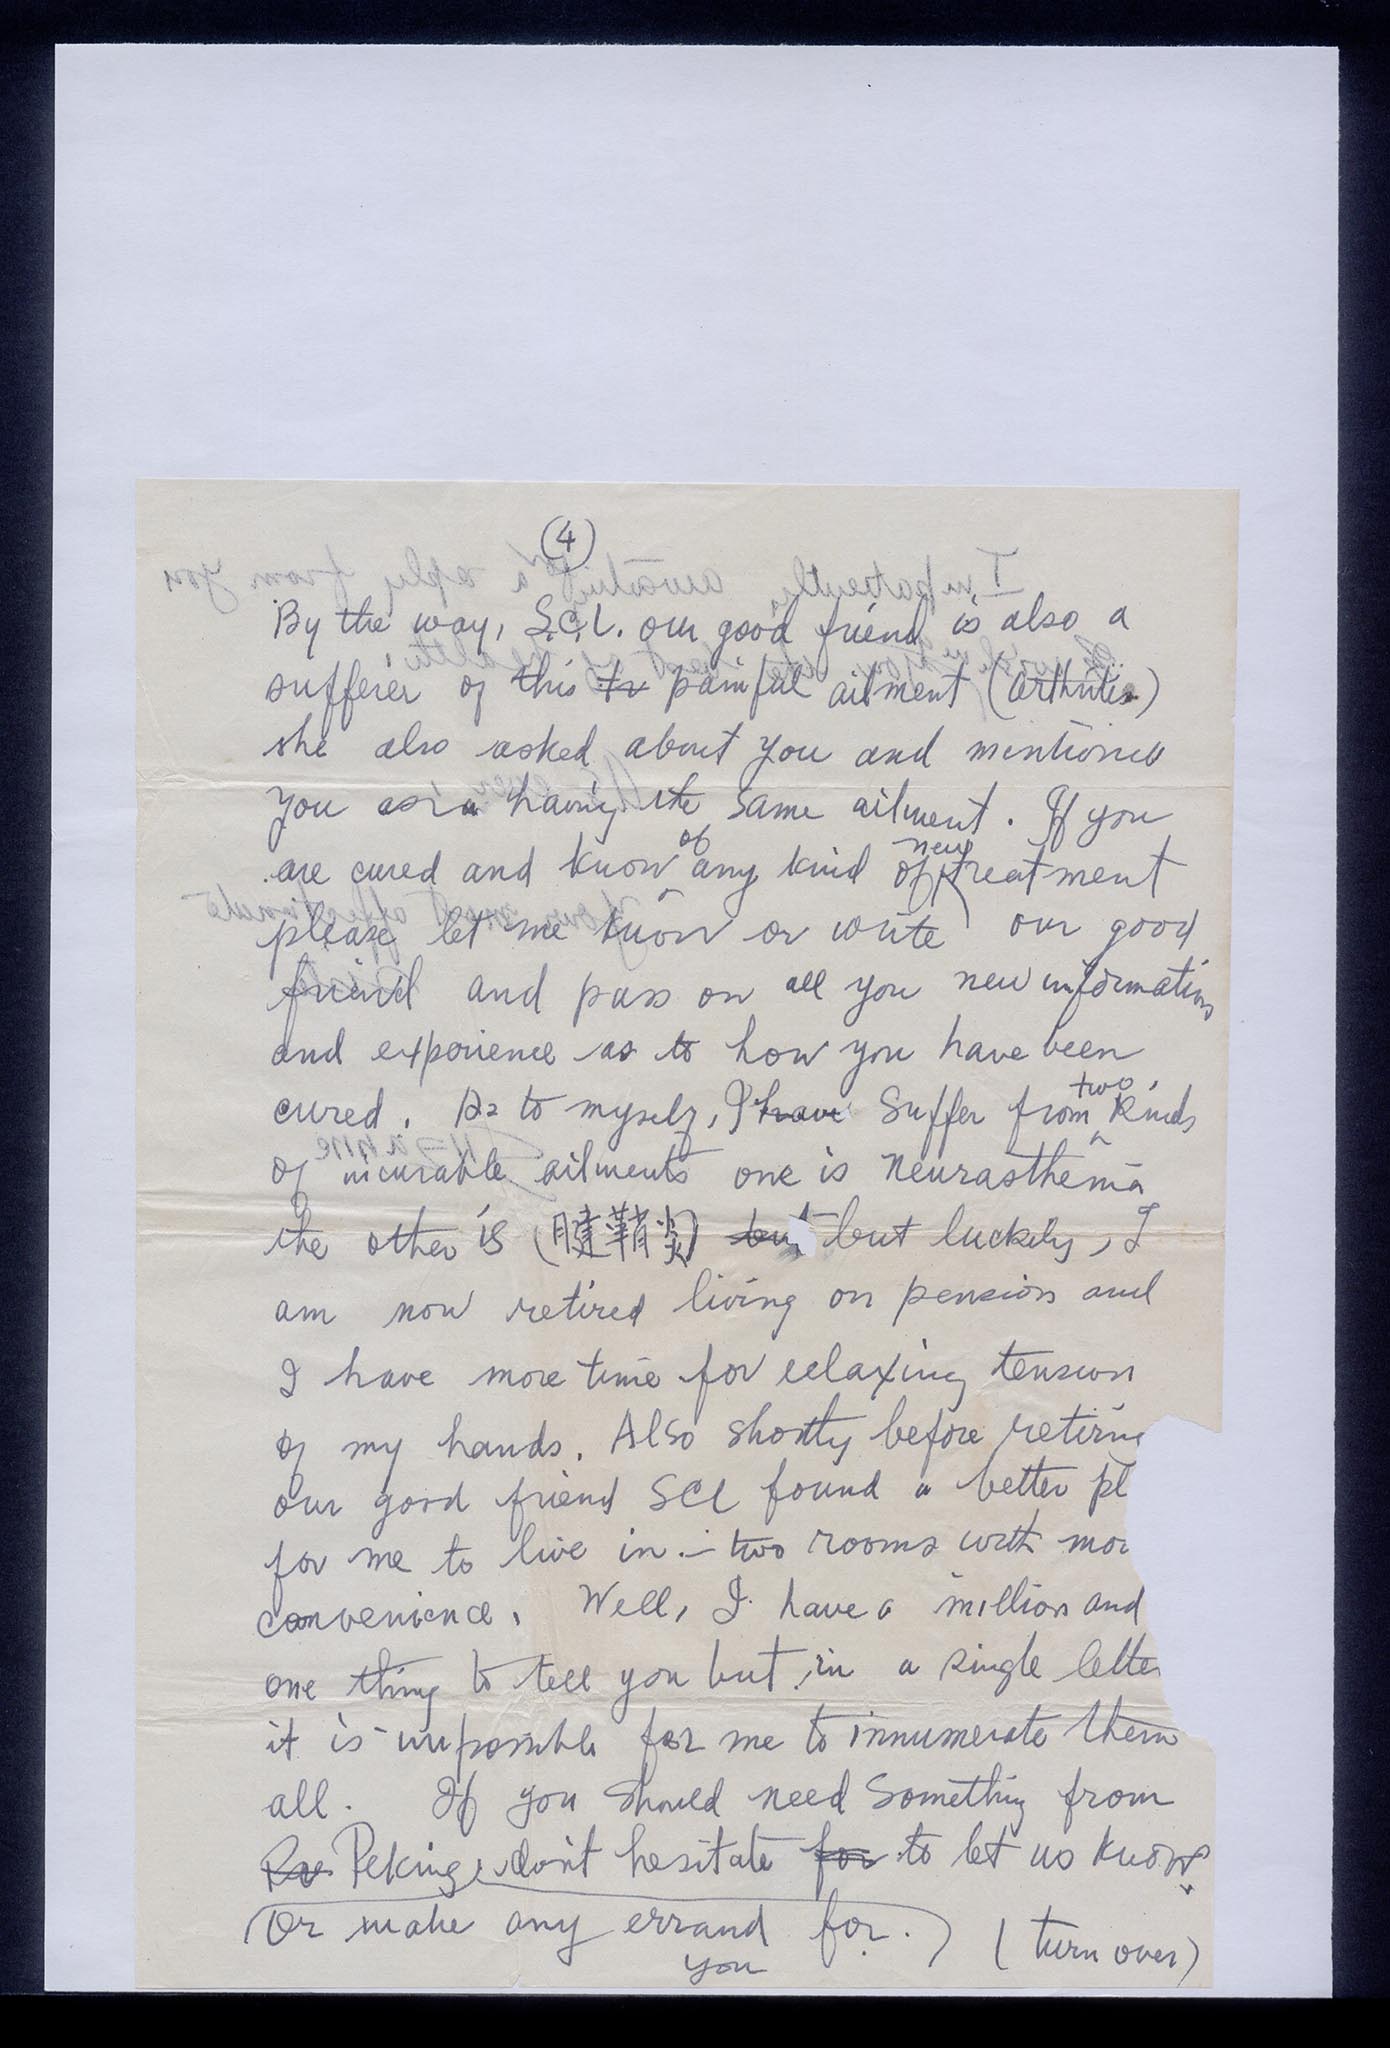 (4)
By the way, S.C.L. our good friend is also a
sufferer of this painful ailment (arthritis)
she also asked about you and mentioned
you as having the same ailment. If you
are cured and know of any kind of new treatment
please let me know or write our good
friend and pass on all you new information
and experience as to how you have been
cured. As to myself, I have suffer from two kinds
of incurable ailments one is neurasthenia
the other is (腱鞘炎) but but luckily, I
am now retired living on pension and
I have more time for relaxing tension
of my hands. Also shortly before retiring
our good friend SCL found a better pl
for me to live in – two rooms with mor
convenience. Well, I have a million and
one thing to tell you but in a single letter
it is impossible for me to innumerate them
all. If you should need something from
Peking, don't hesitate for to let us know
or make any errand for.
you
(turn over)